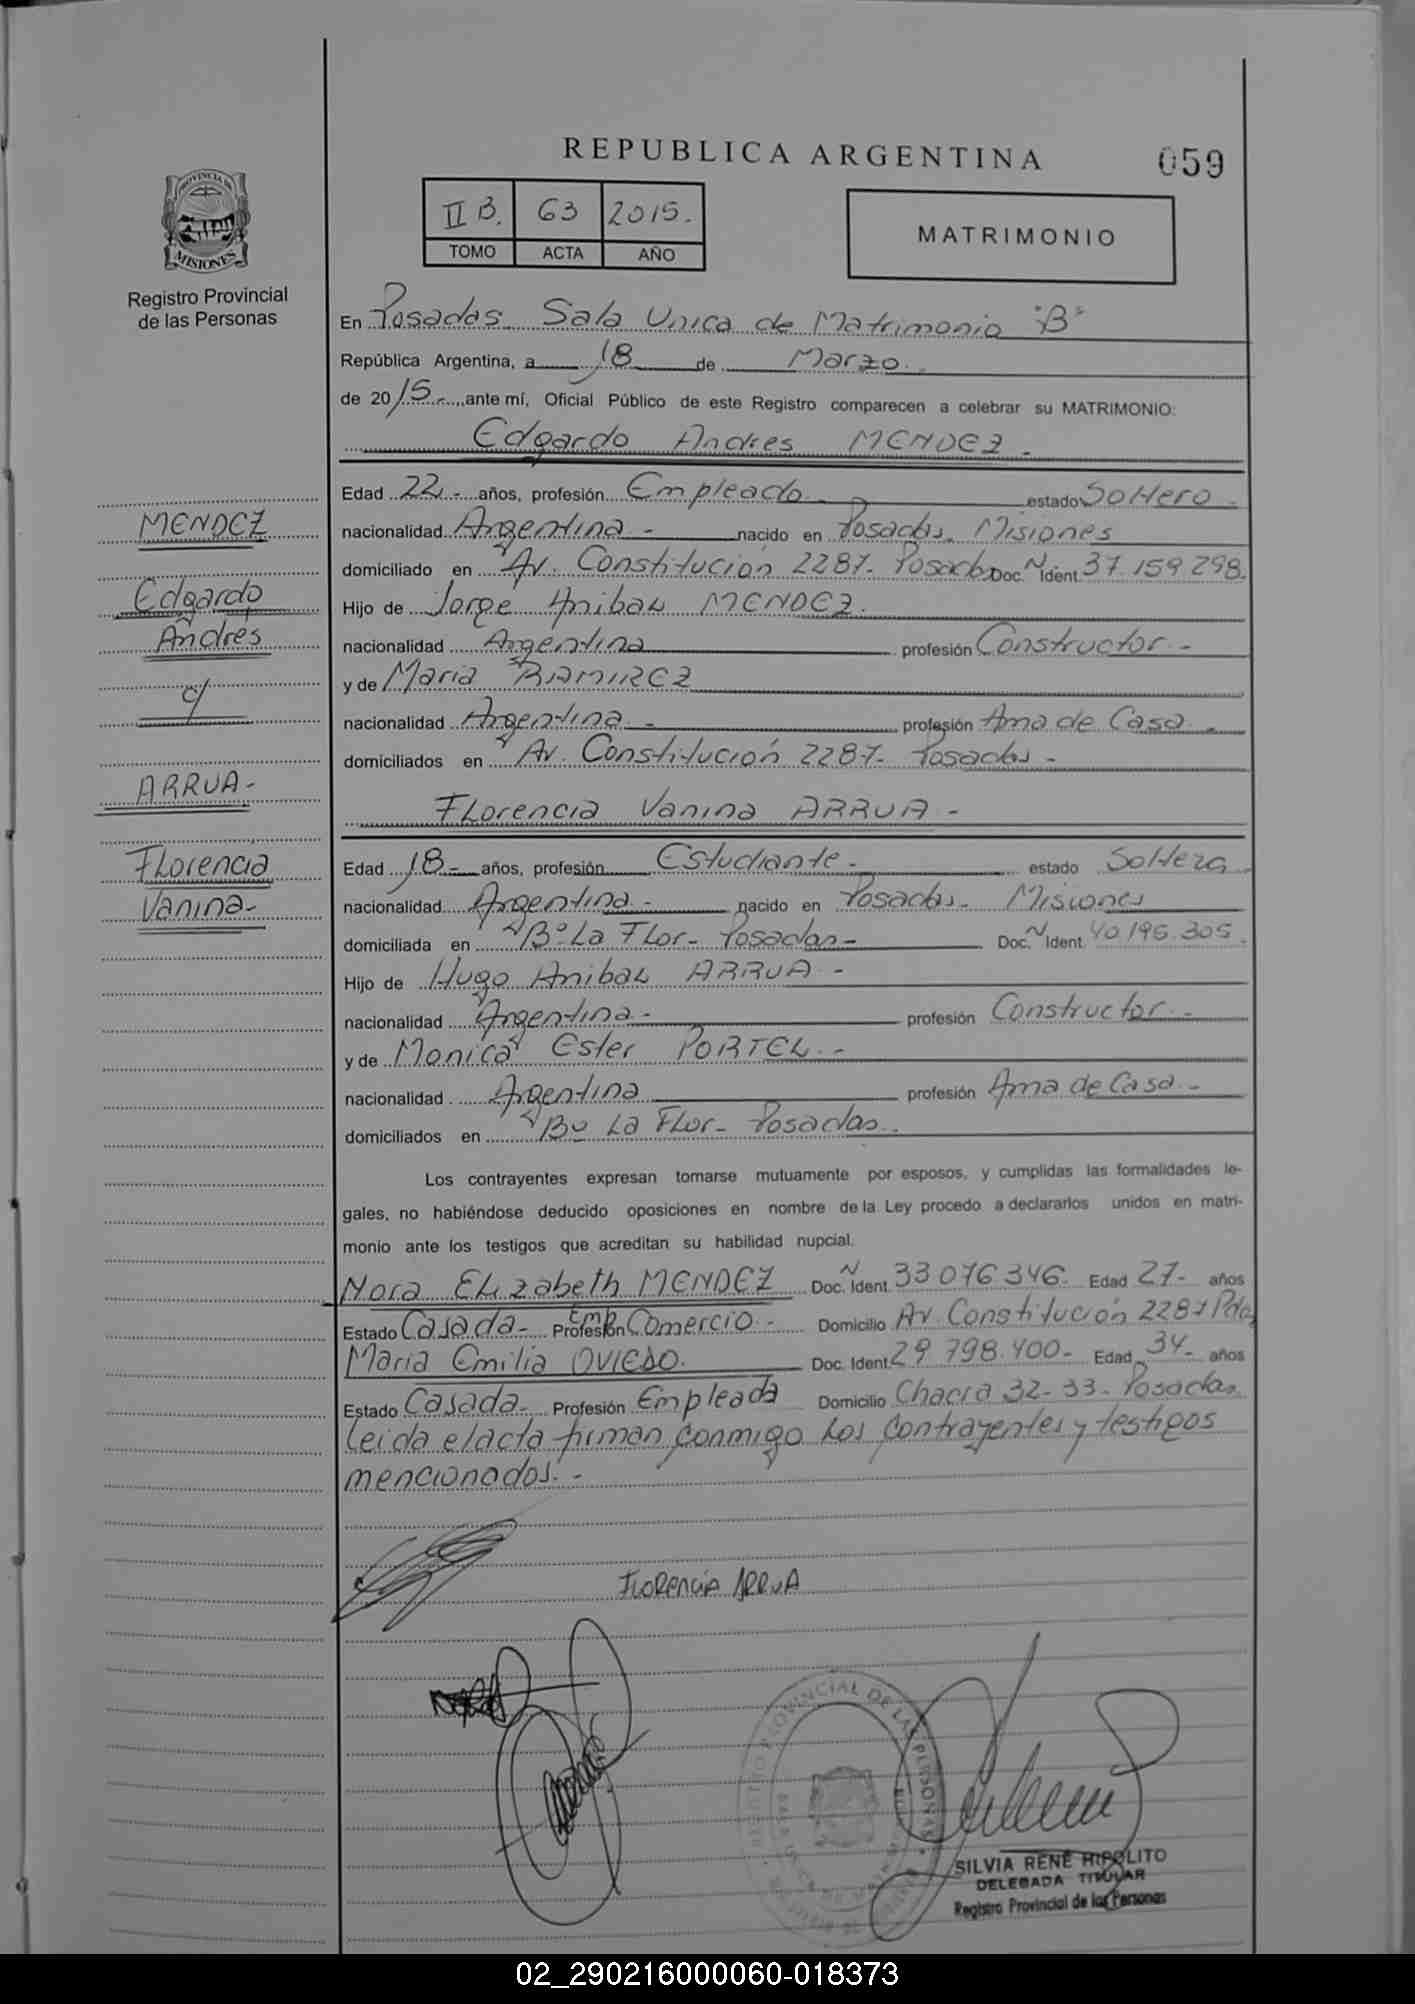 REPUBLICA ARGENTINA
059
PROVINCIA DE
MISIONES
Registro Provincial
de las Personas
II B. 63 2015.
TOMO ACTA AÑO
MATRIMONIO
En Posadas. Sala Unica de Matrimonio "B"
República Argentina, a 18 de Marzo.
de 2015.- ante mí, Oficial Público de este Registro comparecen a celebrar su MATRIMONIO:
Edgardo Andres MENDEZ.-
Edad 22.- años, profesión Empleado estado Soltero.-
nacionalidad Argentina.- nacido en Posadas. Misiones
domiciliado en Av. Constitución 2287- Posadas Doc. N Ident. 37.159.298.
Hijo de Jorge Anibal MENDEZ.
nacionalidad Argentina profesión Constructor.-
y de Maria RAMIREZ
nacionalidad Argentina.- profesión Ama de Casa.-
domiciliados en Av. Constitución 2287- Posadas.-
MENDEZ
Edgardo
Andres
c/
ARRUA-
Florencia
Vanina-
Florencia Vanina ARRUA.-
Edad 18.- años, profesión Estudiante.- estado Soltera.
nacionalidad Argentina.- nacido en Posadas- Misiones
domiciliada en Bº La Flor- Posadas- Doc. N Ident. 40.196.305.
Hijo de Hugo Anibal ARRUA.-
nacionalidad Argentina.- profesión Constructor.-
y de Monica Ester PORTEL.-
nacionalidad Argentina profesión Ama de Casa.-
domiciliados en Bº La Flor- Posadas.
Los contrayentes expresan tomarse mutuamente por esposos, y cumplidas las formalidades le-
gales, no habiéndose deducido oposiciones en nombre de la Ley procedo a declararlos unidos en matri-
monio ante los testigos que acreditan su habilidad nupcial.
Nora Elizabeth MENDEZ Doc. N Ident. 33.076.346. Edad 27- años
Estado Casada- Profesión Emp. Comercio.- Domicilio Av. Constitución 2287 Pdas
Maria Emilia OVIEDO. Doc. Ident. 29.798.400- Edad 34- años
Estado Casada- Profesión Empleada Domicilio Chacra 32-33- Posadas.
Leida el acta firman conmigo los contrayentes y testigos
mencionados.-
FLORENCIA ARRUA
REGISTRO PROVINCIAL DE LAS PERSONAS
SILVIA RENÉ HIPOLITO
DELEGADA TITULAR
Registro Provincial de las Personas
02_290216000060-018373